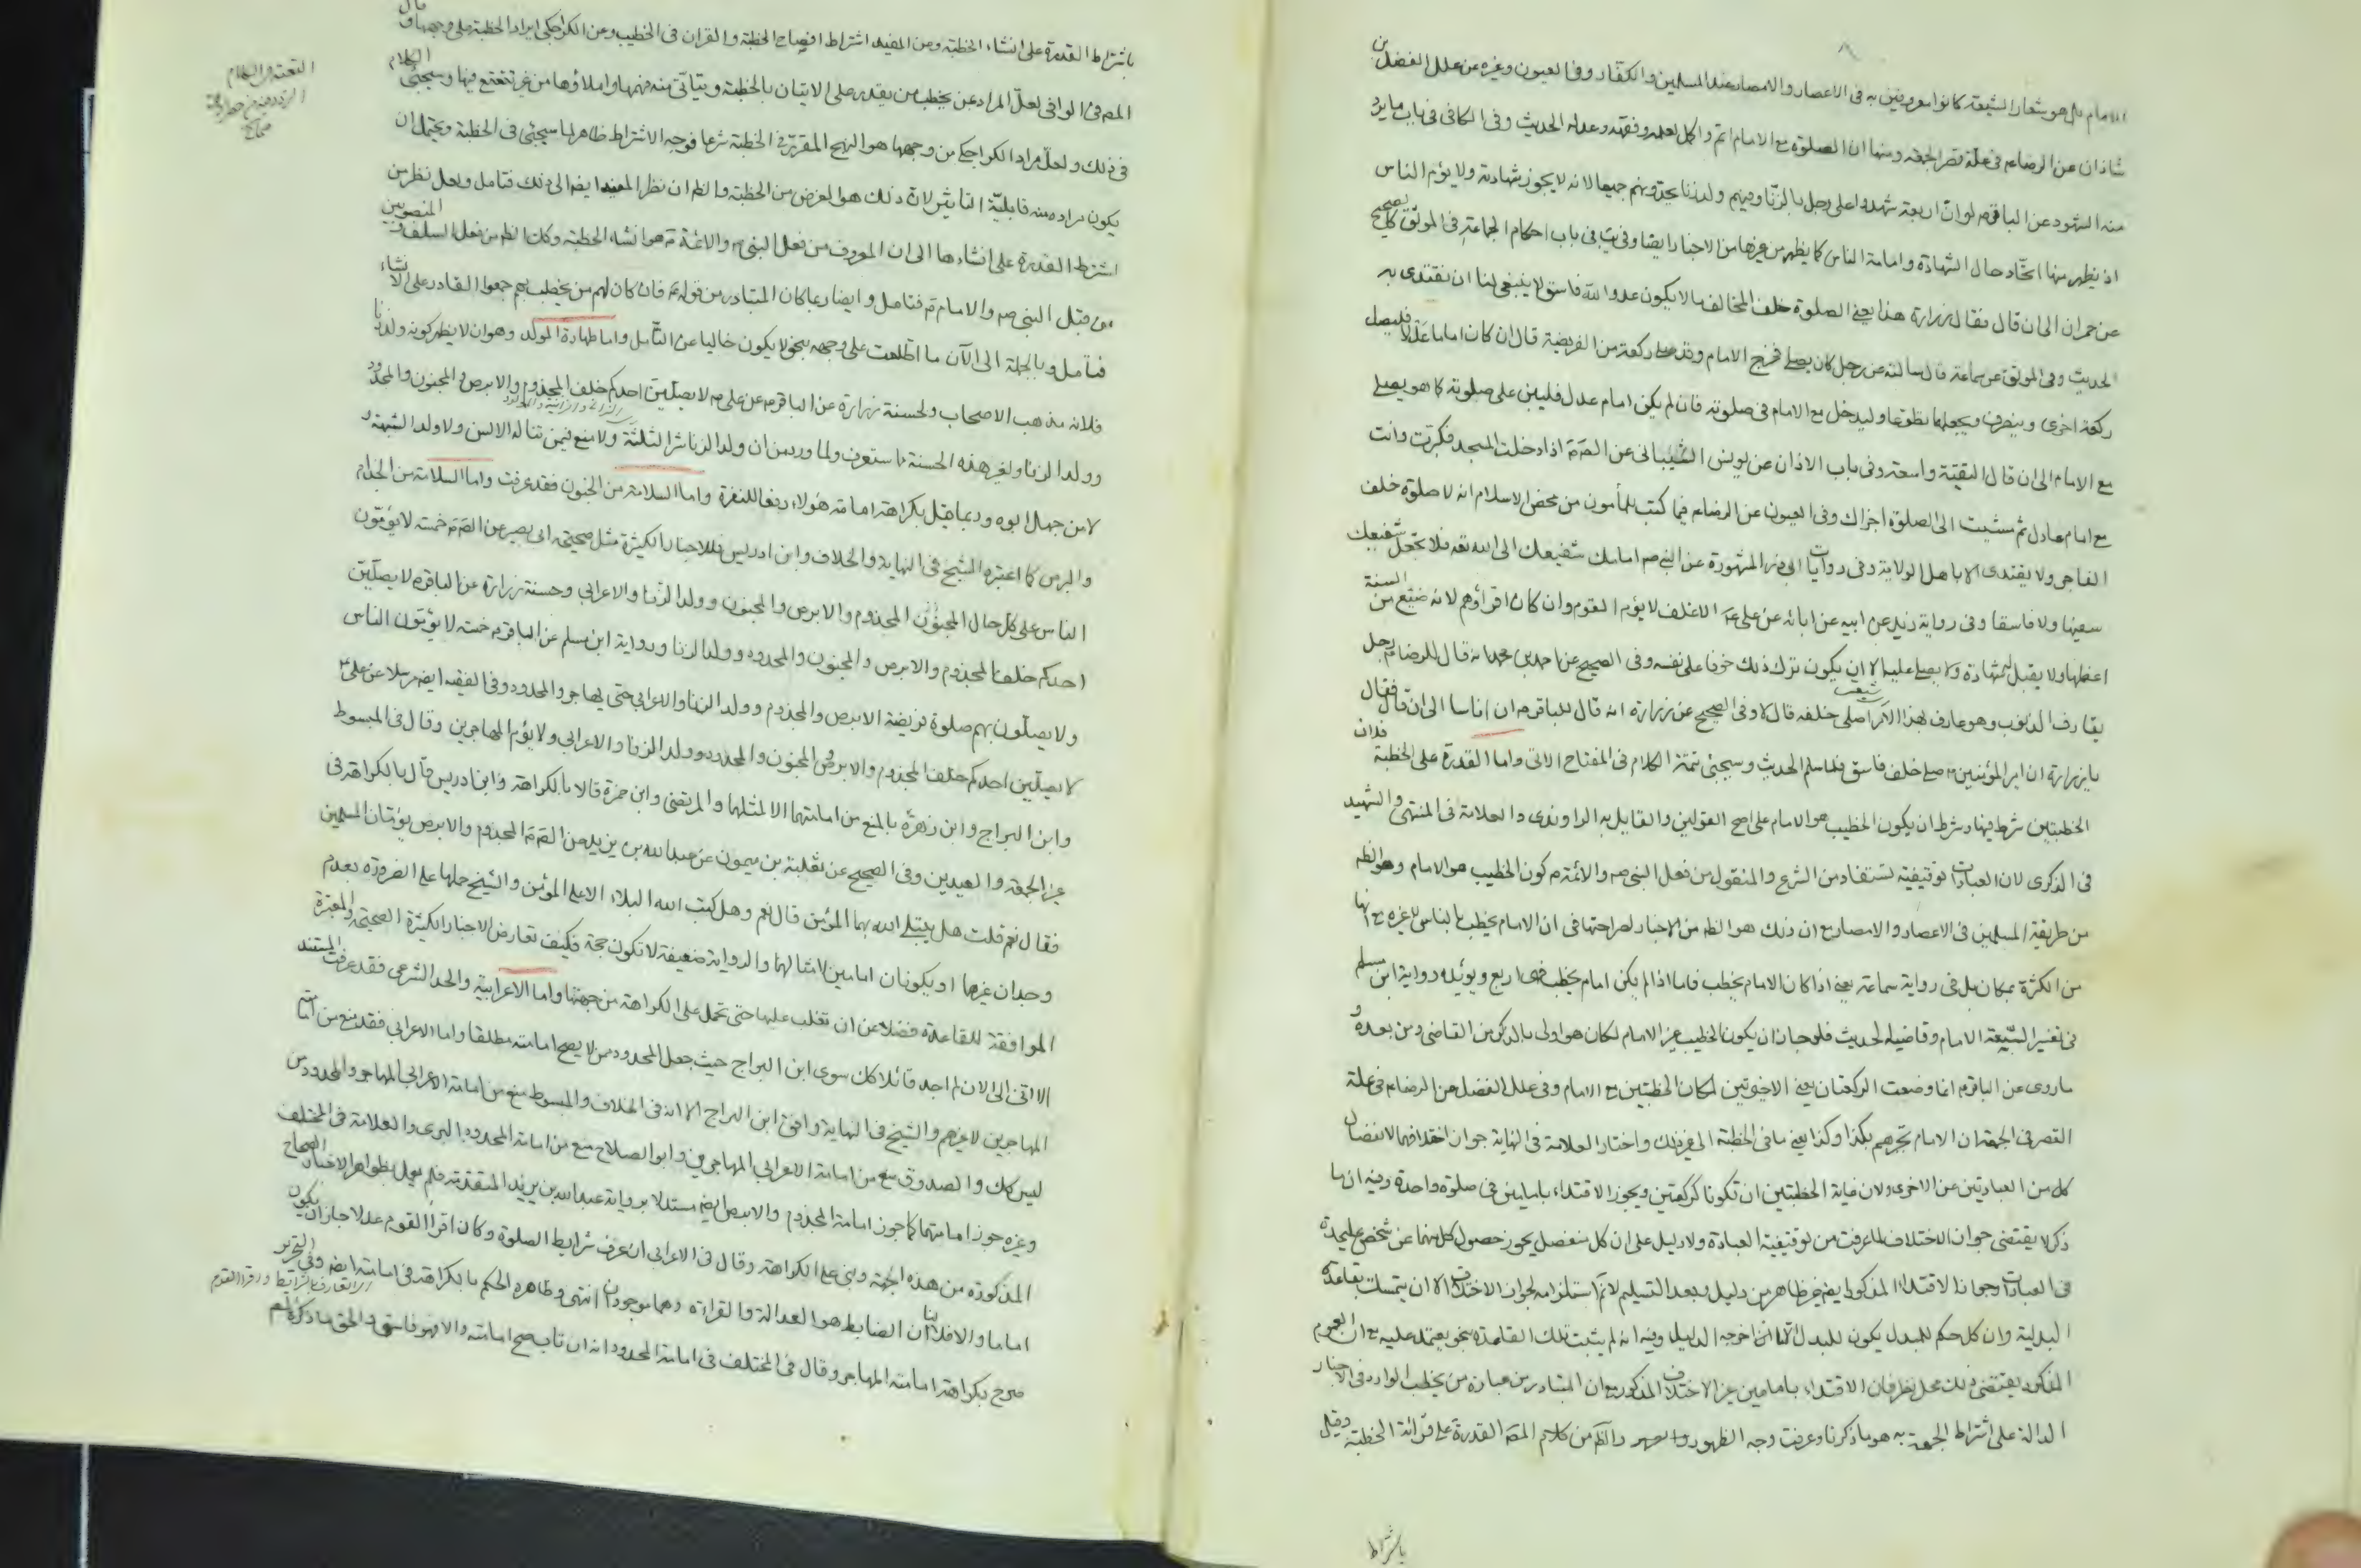 الامام بل هو شعار الشيعة كانوا معروفين به فى الاعصار والامصار عند المسلمين والكفار وفى العيون وغيره عن علل الفضل بن
شاذان عن الرضا ع فى علة قصر الجمعة ومنها ان الصلوة مع الامام اتم واكمل لعلمه وفقهه وعدله الحديث وفى الكافى فى باب ما يرد
منه الشهود عن الباقر ع لو ان اربعة شهدوا على رجل بالزنا وفيهم ولد زنا يحدونهم جميعا لانه لا يجوز شهادته ولا يؤم الناس
اذ يظهر منها اتحاد حال الشهادة وامامة الناس كما يظهر من غيرها من الاخبار ايضا وفى يب فى باب احكام الجماعة فى الموثق كالصحيح
عن حمران الى ان قال فقال زرارة هذا يعنى الصلوة خلف المخالف ما لا يكون عدو الله فاسق لا ينبغى لنا ان نقتدى به
الحديث وفى الموثق عن سماعة قال سالته عن رجل كان يصلى فخرج الامام وقد صلى ركعة من الفريضة قال ان كان اماما عدلا فليصل
ركعة اخرى وينصرف ويجعلها تطوعا وليدخل مع الامام فى صلوته فان لم يكن امام عدل فليبن على صلوته كما هو يصلى
مع الامام الى ان قال التقية واسعة وفى باب الاذان عن يونس الشيبانى عن الصّ ع اذا دخلت المسجد فكبرت وانت
مع امام عادل ثم مشيت الى الصلوة اجزاك وفى العيون عن الرضا ع فيما كتب للمأمون من محض الاسلام انه لا صلوة خلف
الفاجر ولا يقتدى الا باهل الولاية وفى روايات ابى ذر المشهورة عن النبى ص امامك شفيعك الى الله تعه فلا تجعل شفيعك
سفيها ولا فاسقا وفى رواية زيد عن ابيه عن ابائه عن على ع الاغلف لا يؤم القوم وان كان اقرأهم لانه ضيع من السنة
اعظمها ولا يقبل له شهادة ولا يصلى عليه الا ان يكون ترك ذلك خوفا على نفسه وفى الصحيح عن احمد بن محمد انه قال للرضا ع رجل
يقارف الذنوب وهو عارف بهذا الامر اصلى خلفه قال لا وفى الصحيح عن زرارة انه قال للباقر ع ان اناسا الى ان قال فقال
يا زرارة ان امير المؤمنين ع صلى خلف فاسق فلما سلم الحديث وسيجئ تتمة الكلام فى المفتاح الاتى واما القدرة على الخطبة فلان
الخطبتين شرط فيها وشرط ان يكون الخطيب هو الامام على اصح القولين والقايل به الراوندى والعلامة فى المنتهى والشهيد
فى الذكرى لان العبادات توقيفية تستفاد من الشرع والمنقول من فعل النبى ص والائمة ع كون الخطيب هو الامام وهو الظه
من طريقة المسلمين فى الاعصار والامصار مع ان ذلك هو الظه من الاخبار لصراحتها فى ان الامام يخطب بالناس لا غيره مع انها
من الكثرة بمكان بل فى رواية سماعة يعنى اذا كان الامام يخطب فاما اذا لم يكن امام يخطب فهى اربع ويؤيده رواية ابن مسلم
فى تفسير السبعة الامام وقاضيه الحديث فلو جاز ان يكون الخطيب غير الامام لكان هو اولى بالذكر من القاضى ومن بعده و
ما روى عن الباقر ع انما وضعت الركعتان يعنى الاخيرتين لمكان الخطبتين مع الامام وفى علل الفضل عن الرضا ع فى علة
القصر فى الجمعة ان الامام يخبرهم بكذا وكذا يعنى ما فى الخطبة الى غير ذلك واختار العلامة فى النهاية جواز اختلافهما لانفصال
كل من العبادتين عن الاخرى ولان غاية الخطبتين ان تكونا كركعتين ويجوز الاقتداء بامامين فى صلوة واحدة وفيه ان ما
ذكر لا يقتضى جواز الاختلاف لما عرفت من توقيفية العبادة ولا دليل على ان كل منفصل يجوز حصول كل منهما عن شخص عليحدة
فى العبادات وجواز الاقتداء المذكور ايضه غير ظاهر من دليل وبعد التسليم لا نم استلزامه لجواز الاختلاف الا ان يتمسك بقاعدة
البدلية وان كل حكم للمبدل يكون للبدل الا ما اخرجه الدليل وفيه انه لم يثبت تلك القاعدة بنحو يعتمد عليه مع ان العموم
المذكور يقتضى ذلك محل نظر فان الاقتداء بامامين غير الاختلاف المذكور مع ان المتبادر من عبارة من يخطب الوارد فى الاخبار
الدالة على اشتراط الجمعة به هو ما ذكرنا وعرفت وجه الظهور والظه من كلام المصّ القدرة على قرائة الخطبة وقيل
باشتراط
باشتراط القدرة على انشاء الخطبة وعن المفيد اشتراط افصاح الخطبة والقران فى الخطيب وعن الكراجكى ايراد الخطبة على وجهها وقال
المصّ فى الوافى لعل المراد عن يخطب من يقدر على الاتيان بالخطبة ويتأتى منه فهمها واملاؤها من غير تتعتع فيها وسيجئ الكلام
فى ذلك ولعل مراد الكراجكى من وجهها هو النهج المقرر فى الخطبة شرعا فوجه الاشتراط ظاهر لما سيجئ فى الخطبة ويحتمل ان
يكون مراده منه قابلية التاثير لان ذلك هو الغرض من الخطبة والظه ان نظر المفيد ايضه الى ذلك فتامل ولعل نظر من
اشترط القدرة على انشاءها الى ان المعروف من فعل النبى ص والائمة ع هو انشاء الخطبة وكان الظه من فعل السلف المنصوبين
من قبل النبى ص والامام ع فتامل وايضا ربما كان المتبادر من قوله ع فان كان لهم من يخطب بهم جمعوا القادر على الانشاء
فتامل وبالجملة الى الآن ما اطلعت على وجهه بنحو لا يكون خاليا عن التأمل واما طهارة المولد وهو ان لا يظهر كونه ولد زنا
فلانه مذهب الاصحاب ولحسنة زرارة عن الباقر ع عن على ع لا يصلين احدكم خلف المجذوم والابرص والمجنون والمحدود
وولد الزنا ولغير هذه الحسنة ما ستعرف ولما ورد من ان ولد الزنا شر الثلثة ولا منع فيمن تناله الالسن ولا ولد الشبهة و
لا من جهل ابوه وربما قيل بكراهة امامة هؤلاء دفعا للنفرة واما السلامة من الجنون فقد عرفت واما السلامة من الجذام
والبرص كما اعتبره الشيخ فى النهاية والخلاف وابن ادريس فللاخبار الكثيرة مثل صحيحة ابى بصير عن الصّ ع خمسة لا يؤمون
الناس على كل حال المجذوم والابرص والمجنون وولد الزنا والاعرابى وحسنة زرارة عن الباقر ع لا يصلين
احدكم خلف المجذوم والابرص والمجنون والمحدود وولد الزنا ورواية ابن مسلم عن الباقر ع خمسة لا يؤمون الناس
ولا يصلون بهم صلوة فريضة الابرص والمجذوم وولد الزنا والاعرابى حتى يهاجر والمحدود وفى الفقيه ايضه مرسلا عن على ع
لا يصلين احدكم خلف المجذوم والابرص والمجنون والمحدود وولد الزنا والاعرابى ولا يؤم المهاجرين وقال فى المبسوط
وابن البراج وابن زهرة بالمنع من امامتهما الا لمثلهما والمرتضى وابن حمزة قالا بالكراهة وابن ادريس قال بالكراهة فى
غير الجمعة والعيدين وفى الصحيح عن ثعلبة بن ميمون عن عبد الله بن يزيد عن الصّ ع المجذوم والابرص يؤمان المسلمين
فقال نعم قلت هل يبتلى الله بهما المؤمن قال نعم وهل كتب الله البلاء الا على المؤمن والشيخ حملها على الضرورة بعدم
وجدان غيرهما او يكونان امامين لامثالهما والرواية ضعيفة لا تكون حجة فكيف تعارض الاخبار الكثيرة الصحيحة والمعتبرة
الموافقة للقاعدة فضلا عن ان تغلب عليها حتى تحمل على الكراهة من جهتها واما الاعرابية والحد الشرعى فقد عرفت المستند
الا انى الى الان لم اجد قائلا كك سوى ابن البراج حيث جعل المحدود من لا يصح امامته مطلقا واما الاعرابى فقد منع من امامته
المهاجرين لا غيرهم والشيخ فى النهاية وافق ابن البراج الا انه فى الخلاف والمبسوط منع من امامة الاعرابى المهاجر والمحدود من
ليس كك والصدوق منع من امامة الاعرابى المهاجرين وابو الصلاح منع من امامة المحدود البرى والعلامة فى المختلف
وغيره جوز امامتهما كما جوز امامة المجذوم والابرص ايضه مستدلا برواية عبد الله بن يزيد المتقدمة فلم يعمل بظواهر الاخبار الصحاح
المذكورة من هذه الجهة وبنى على الكراهة وقال فى الاعرابى ان عرف شرايط الصلوة وكان اقرأ القوم عدلا جاز ان يكون
اماما والا فلا لنا ان الضابط هو العدالة والقراءة وهما موجودان انتهى وظاهره الحكم بالكراهة فى امامته ايضه وفى التحرير
صرح بكراهة امامته المهاجر وقال فى المختلف فى امامة المحدود انه ان تاب صح امامته والا فهو فاسق والحق ما ذكره